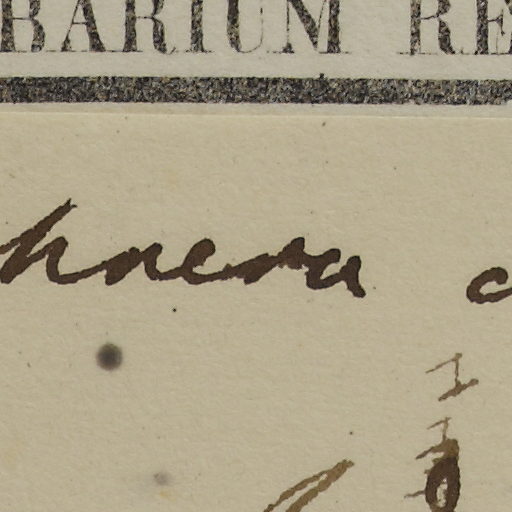 BARIUM RE
hnera c